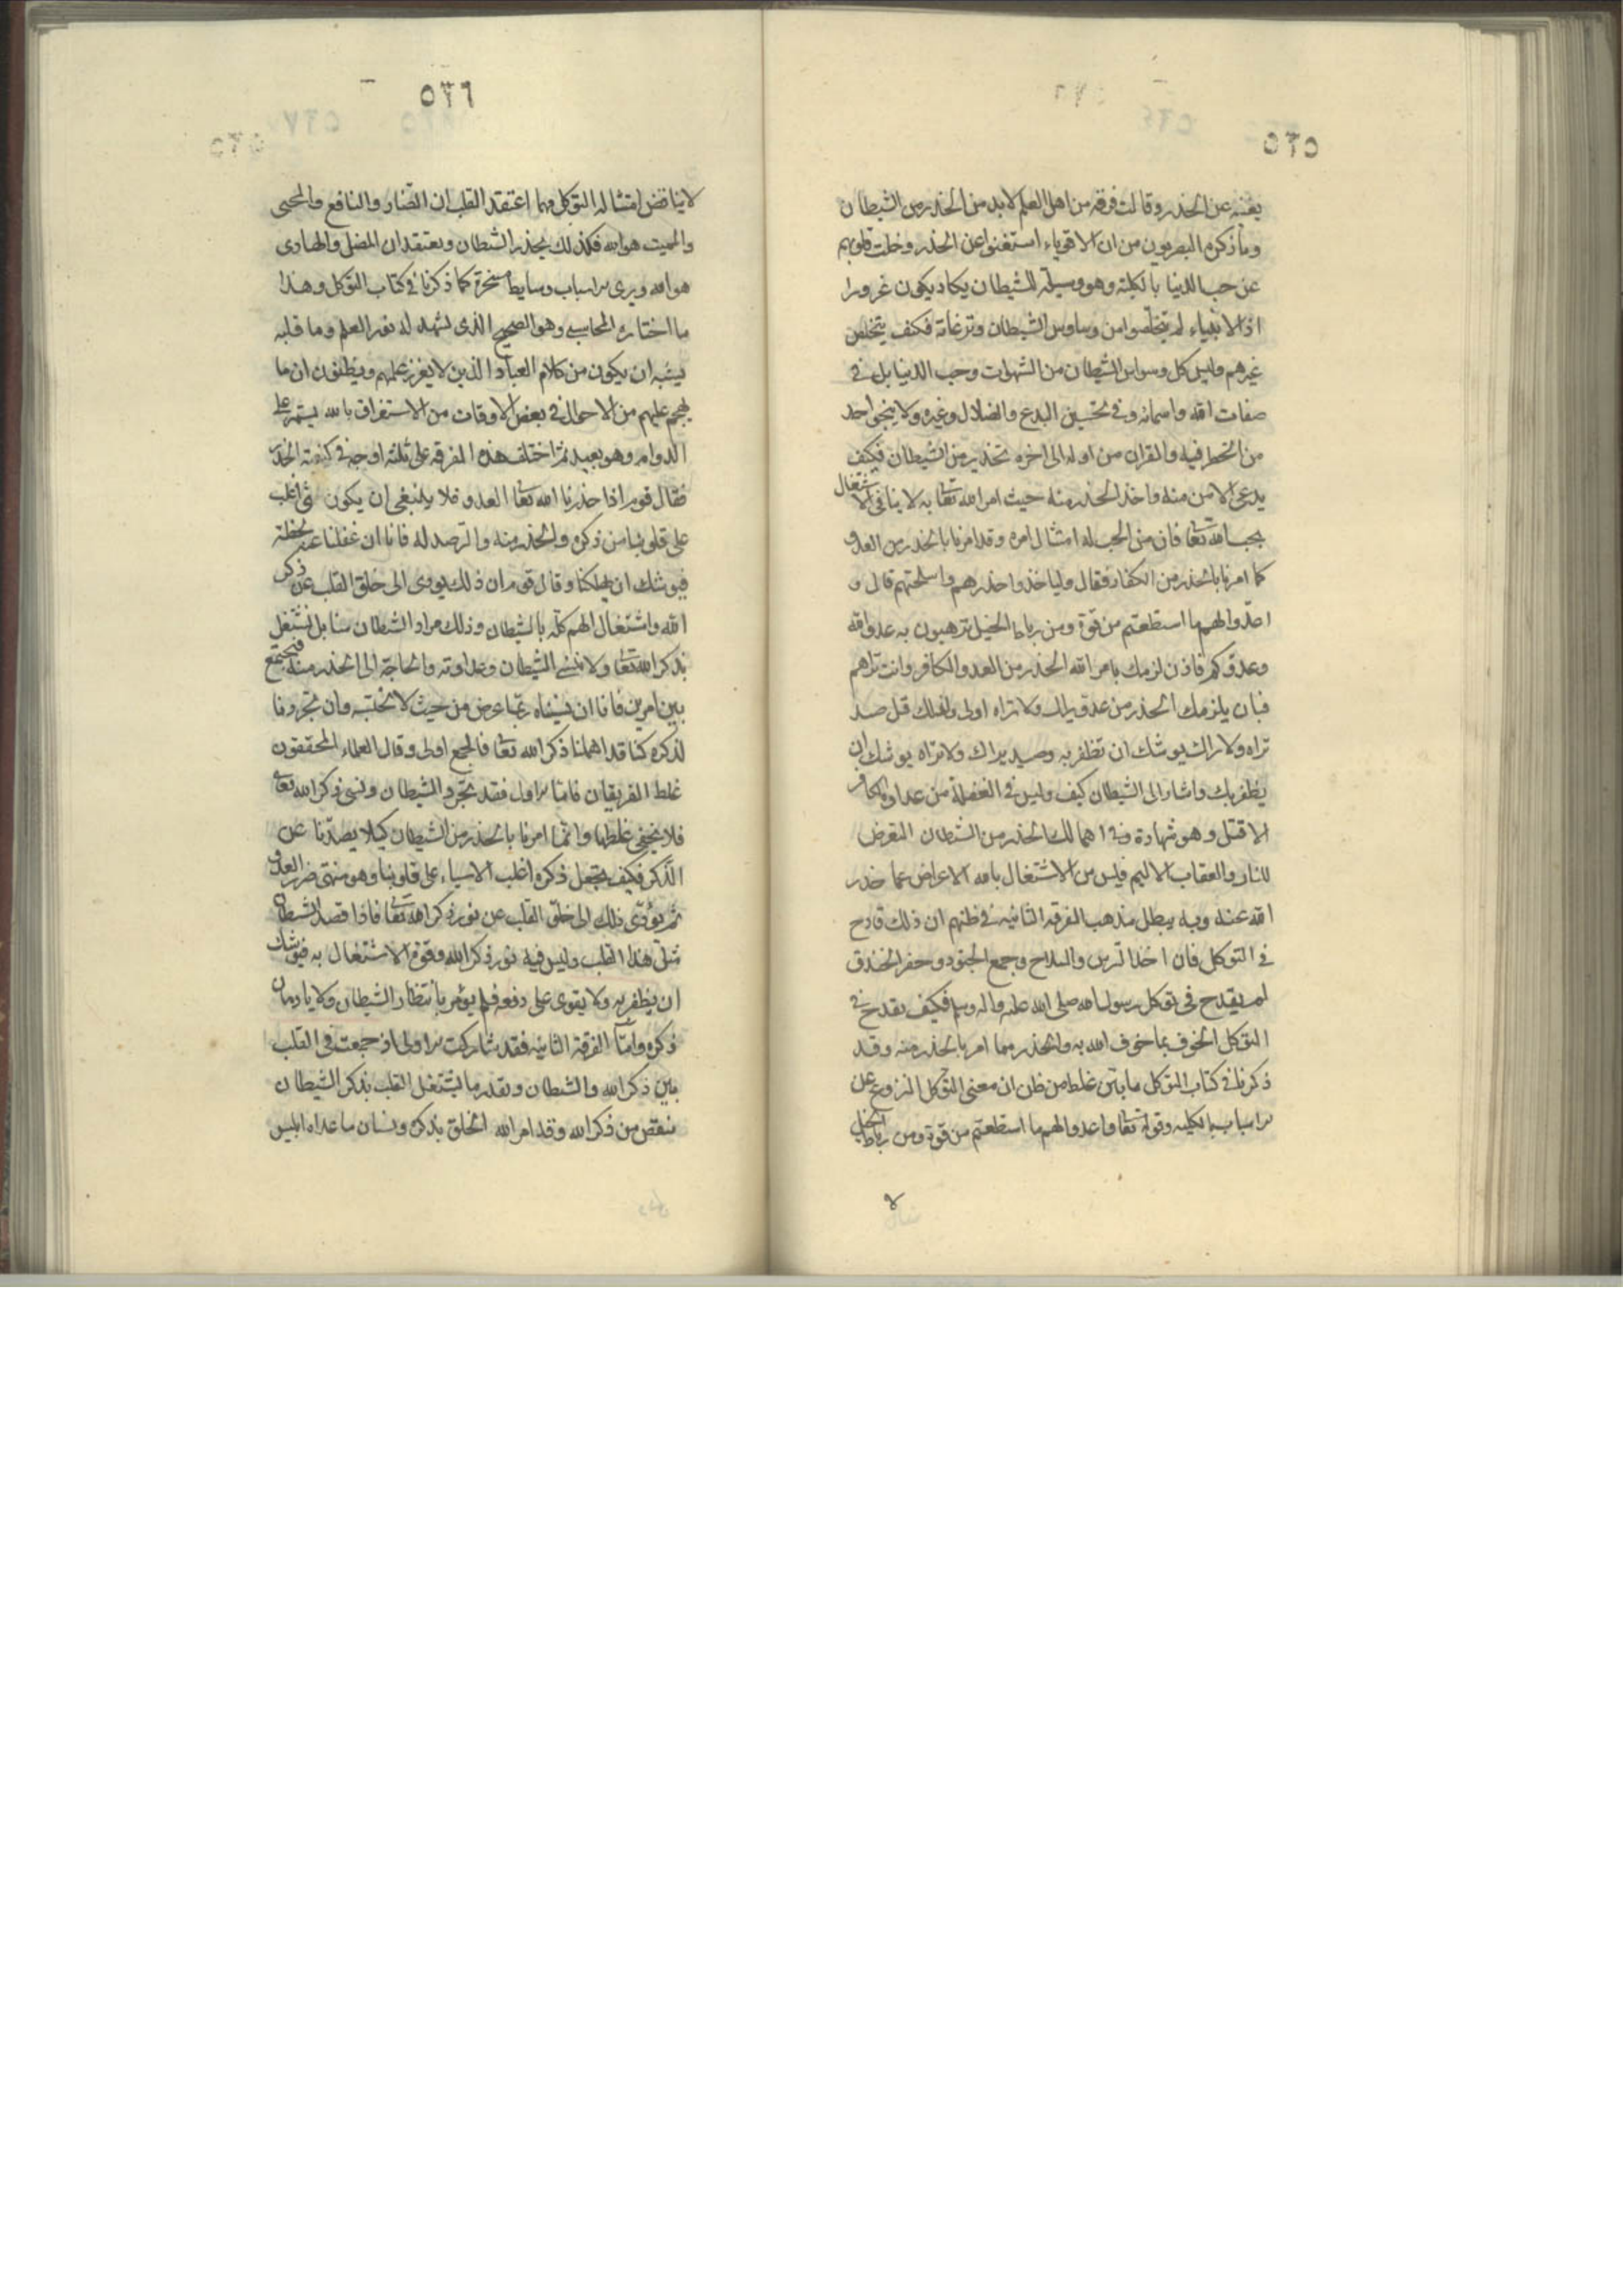 ٥٢٥
يغنيه عن الحذر وقالت فرقه من اهل العلم لابد من الحذر من الشيطان
وما ذكره البصريون من ان الاقوياء استغنوا عن الحذر وخلت قلوبهم
عن حب الدنيا بالكلية وهو وسيلة للشيطان يكاد يكون غرورا
اذ الانبياء لم يتخلصوا من وساوس الشيطان ونزغاته فكيف يتخلص
غيرهم وليس كل وسواس الشيطان من الشهوات وحب الدنيا بل في
صفات الله واسمائه وفي تحسين البدع والضلال وغيره ولا ينجى احد
من الخطر فيه والقران من اوله الى اخره تحذير من الشيطان فكيف
يدعى الامن منه واخذ الحذر منه حيث امر الله تعا به لا ينافي الاشتغال
بحب الله تعا فان من الحب له امتثال امره وقد امرنا بالحذر من العدو
كما امرنا بالحذر من الكفار فقال وليا خذوا حذرهم واسلحتهم قال و
اعدوا لهم ما استطعتم من قوة ومن رباط الخيل ترهبون به عدو الله
وعدوكم فاذن لزمك بامر الله الحذر من العدو الكافر وانت تراهم
فبان يلزمك الحذر من عدو يراك ولا تراه اولى ولذلك قيل صيد
تراه ولا يراك يوشك ان تظفر به وصيد يراك ولا تراه يوشك ان
يظفر بك واشار الى الشيطان كيف وليس في الغفلة من عداوة الكافر
الا قتل وهو شهادة وفي اهمالك الحذر من الشطان التعرض
للنار والعقاب الاليم فليس من الاشتغال بالله الاعراض عما حذر
الله عنه وبه يبطل مذهب الفرقه الثانيه في ظنهم ان ذلك قادح
في التوكل فان اخذ الترس والسلاح وجمع الجنود وحفر الخندق
لم يقدح في توكل رسول الله صلى الله عليه واله وسلم فكيف يقدح في
التوكل الخوف بما خوف الله به والحذر مما امر بالحذر منه وقد
ذكرنا في كتاب التوكل ما يبين غلط من ظن ان معنى التوكل النزوع عن
الاسباب بالكليه وقوله تعا واعدوا لهم ما استطعتم من قوة ومن رباط الخيل
لا
٥٢٦
لا يناقض امتثاله التوكل مهما اعتقد القلب ان الضار والنافع والمحيى
والمميت هو الله فكذلك يحذر الشطان ويعتقد ان المضل والهادى
هو الله ويرى الاسباب وسايط مسخرة كما ذكرنا في كتاب التوكل وهذا
ما اختاره المحاسبى وهو الصحيح الذى يشهد له نور العلم وما قبله
يشبه ان يكون من كلام العباد الذين لا يغزر علمهم ويظنون ان ما
يهجم عليهم من الاحوال في بعض الاوقات من الاستغراق بالله يستمر على
الدوام وهو بعيد ثم اختلف هذه الفرقه على ثلثه اوجه في كيفية الحذر
فقال قوم اذا حذرنا الله تعا العدو فلا ينبغى ان يكون شى اغلب
على قلوبنا من ذكره والحذر منه والترصد له فانا ان غفلنا عنه لحظة
فيوشك ان يهلكنا وقال قوم ان ذلك يودى الى خلق القلب عن ذكر
الله واشتغال الهم كله بالشيطان وذلك مراد الشطان منا بل نشتغل
بذكر الله تعا ولا ننسى الشيطان وعداوته والحاجة الى الحذر منه فنجمع
بين امرين فانا ان نسيناه ربما عرض من حيث لا نحتسب وان تجردنا
لذكره كنا قد اهملنا ذكر الله تعا فالجمع اولى وقال العلماء المحققون
غلط الفريقان فاما الاول فقد تجرد الشيطان ونسى ذكر الله تعا
فلا يخفى غلطها وانما امرنا بالحذر من الشيطان كيلا يصدنا عن
الذكر فكيف يجعل ذكره اغلب الاشياء على قلوبنا وهو منتهى ضرر العدو
ثم يؤدى ذلك الى خلق القلب عن نور ذكر الله تعا فاذا قصد الشيطان
مثل هذا القلب وليس فيه نور ذكر الله وقوة الاشتغال به فيوشك
ان يظفر به ولا يقوى على دفعه فلم يؤمر بانتظار الشيطان ولا بادمان
ذكره واما الفرقه الثانيه فقد شاركت الاولى اذ جمعت في القلب
بين ذكر الله والشطان وبقدر ما يشتغل القلب بذكر الشيطان
ينقص من ذكر الله وقد امر الله الخلق بذكره ونسيان ما عداه ابليس